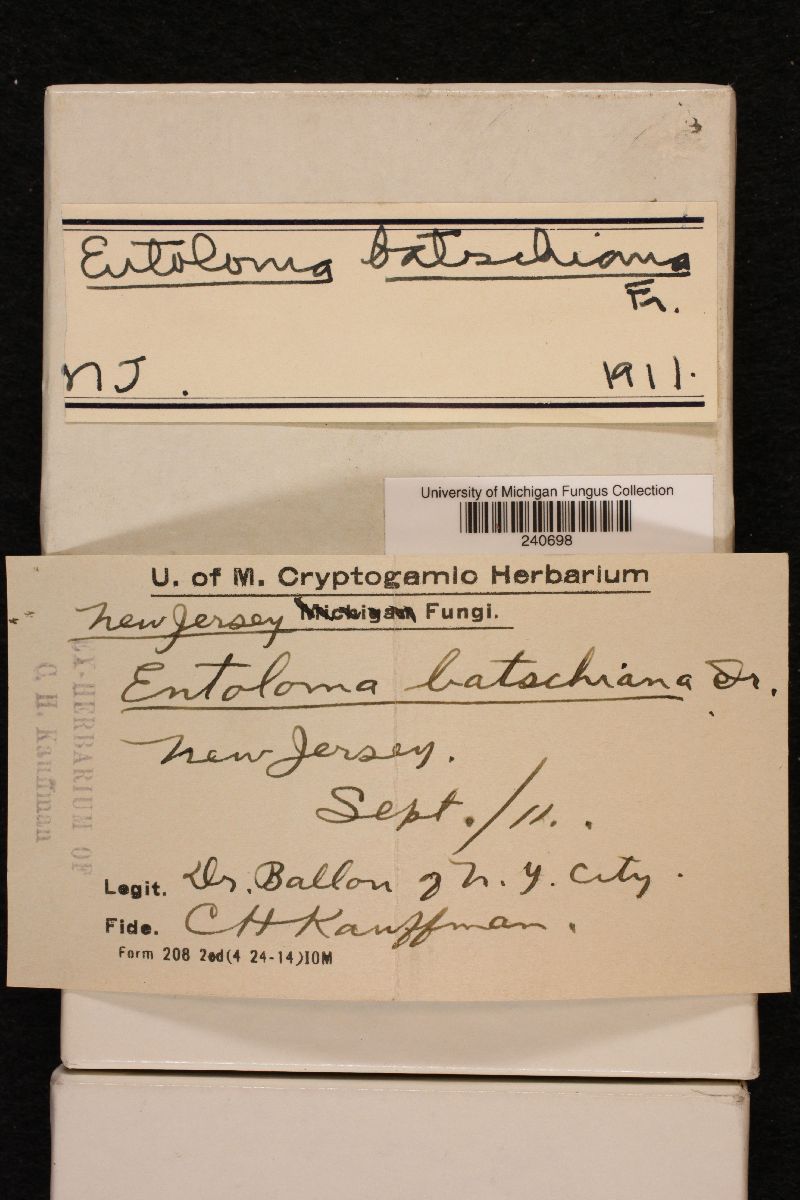 Entoloma batschiana
Fr.
NJ. 1911.
University of Michigan Fungus Collection
240698
U. of M. Cryptogamic Herbarium
New Jersey Michigan Fungi.
Entoloma batschiana Fr.
New Jersey.
Sept./11.
Legit. Dr. Ballou of N. Y. City.
Fide. C H Kauffman.
Form 208 2ed(4 24-14)10M
EX-HERBARIUM OF
C. H. Kauffman